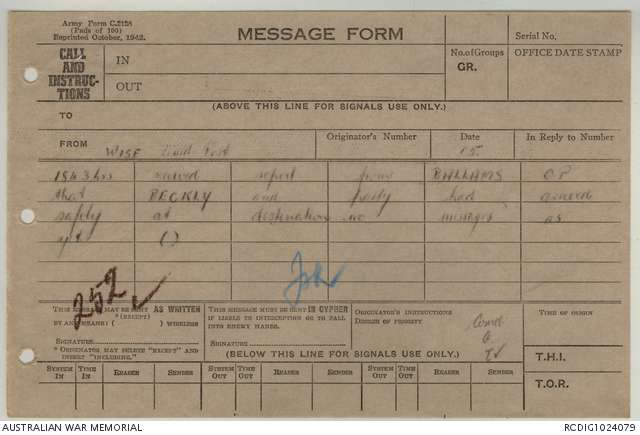 Army Form C.2128
(Pads of 100)
Reprinted October, 1942.
MESSAGE FORM
Serial No.
CALL
AND
INSTRUC-
TIONS
IN
OUT
No. of Groups
GR.
OFFICE DATE STAMP
(ABOVE THIS LINE FOR SIGNALS USE ONLY.)
TO
FROM
Originator's Number
Date
In Reply to Number
15
1843 hrs report from OP
that BECKLY and party had
safely at destination no as
yet ( )
252
THIS MESSAGE MAY BE SENT AS WRITTEN
(EXCEPT)
BY ANY MEANS ( ) WIRELESS
SIGNATURE
* ORIGINATOR MAY DELETE "EXCEPT" AND
INSERT "INCLUDING."
THIS MESSAGE MUST BE SENT IN CYPHER
IF LIABLE TO INTERCEPTION OR TO FALL
INTO ENEMY HANDS.
SIGNATURE
ORIGINATOR'S INSTRUCTIONS
DEGREE OF PRIORITY
TIME OF ORIGIN
(BELOW THIS LINE FOR SIGNALS USE ONLY.)
T.H.I.
SYSTEM IN TIME IN READER SENDER SYSTEM OUT TIME OUT READER SENDER SYSTEM OUT TIME OUT READER SENDER
T.O.R.
AUSTRALIAN WAR MEMORIAL
RCDIG1024079